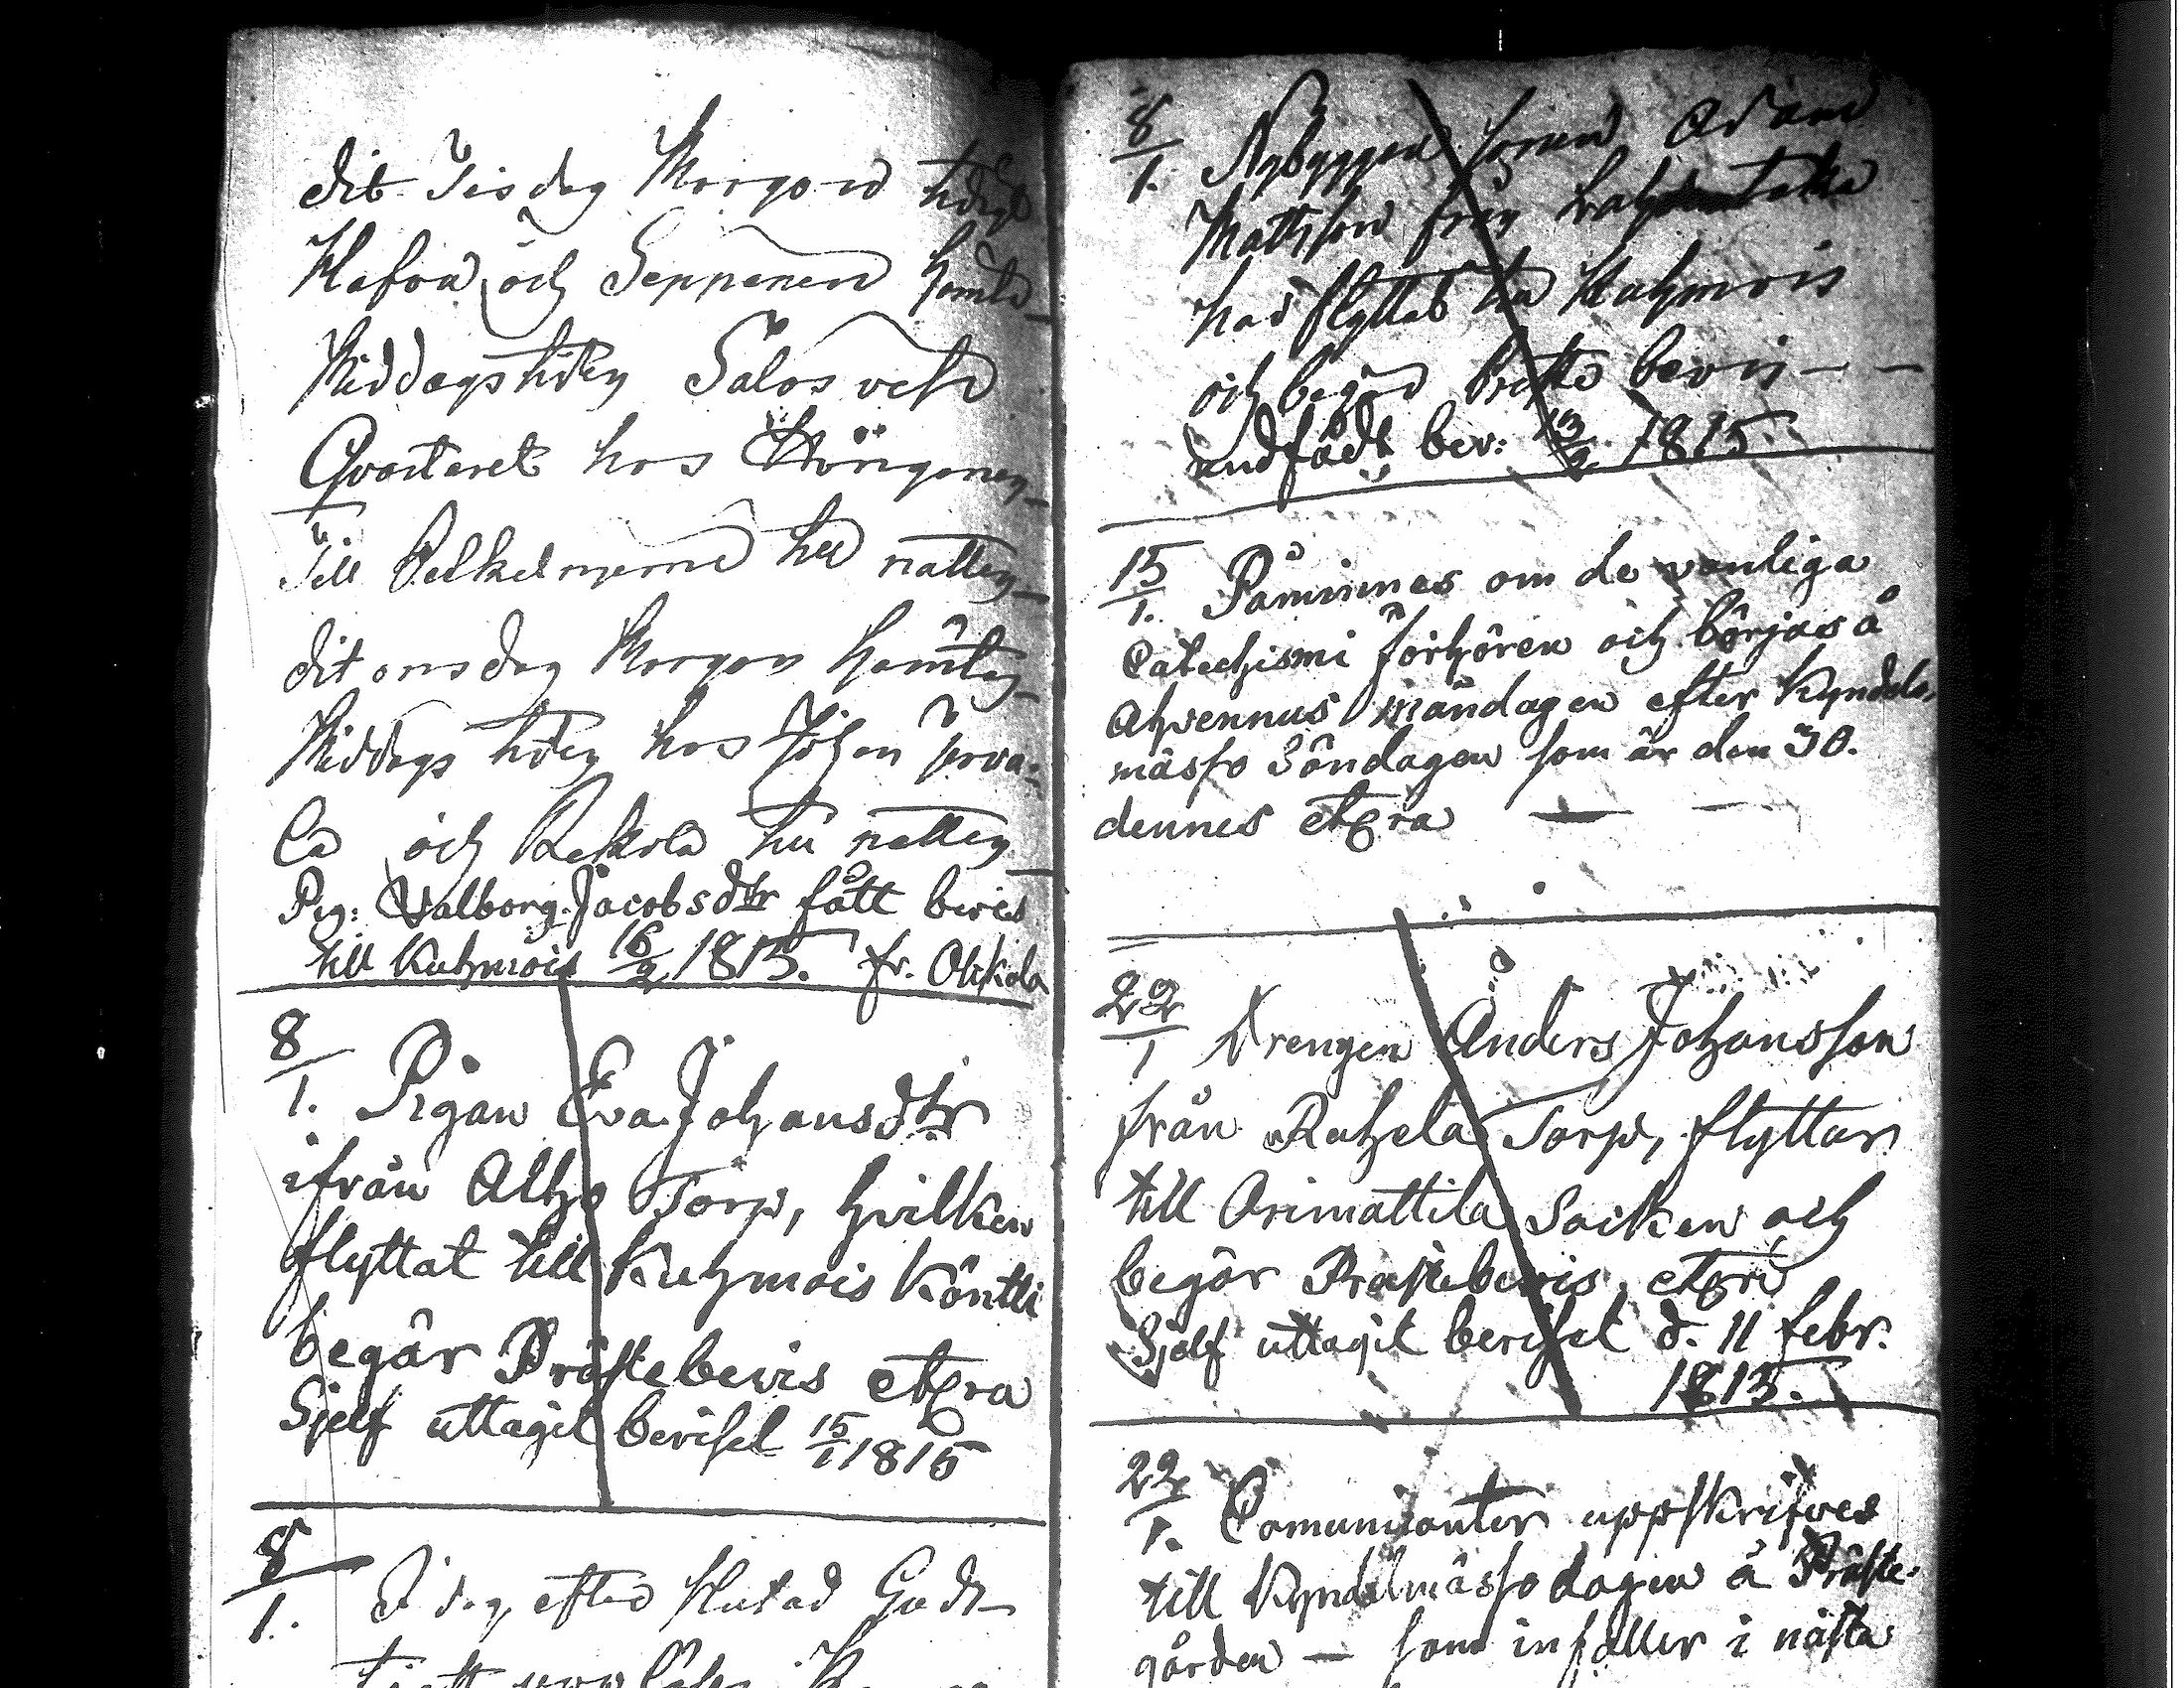 dit Tisdag Morgon
och Seppänen
Middagstiden Salos och
Qvarteret hos
Till till natten
dit onsdag Morgon hämtas
Middags tiden hos
La och Rekola till natten
Pig: Walborg Jacobsdtr fått bevis
till Kuhmois 16/2 1815. fr. Olkkola
8/1. Pigan Eva Johansdtr
ifrån Alho Torp, hvilken
flyttat till Kuhmois Köntti
begär Prästebevis etCra
Sjelf uttagit beviset 15/1 1815
8/1. I dag efter slutad Guds
8/1. Nybyggar sonen Adam
Mattsson från
har flyttat till Kuhmois
och begär Preste bevis — —
undfådt bev: 13/2 1815.
15/1. Påminnes om de vanliga
Catechismi förhören och börjas å
Ahvennus måndagen efter Kyndels
mässo Söndagen som är den 30.
dennes etCra — —
22/1 Drengen Anders Johansson
från Rahela Torp, flyttar
till Arimattila Socken och
begär Prästebevis, etCra
Sjelf uttagit beviset d. 11 febr.
1815.
22/1. Comunicanter uppskrifves
till Kyndelmässo dagen å Präste-
gården — som infaller i nästa